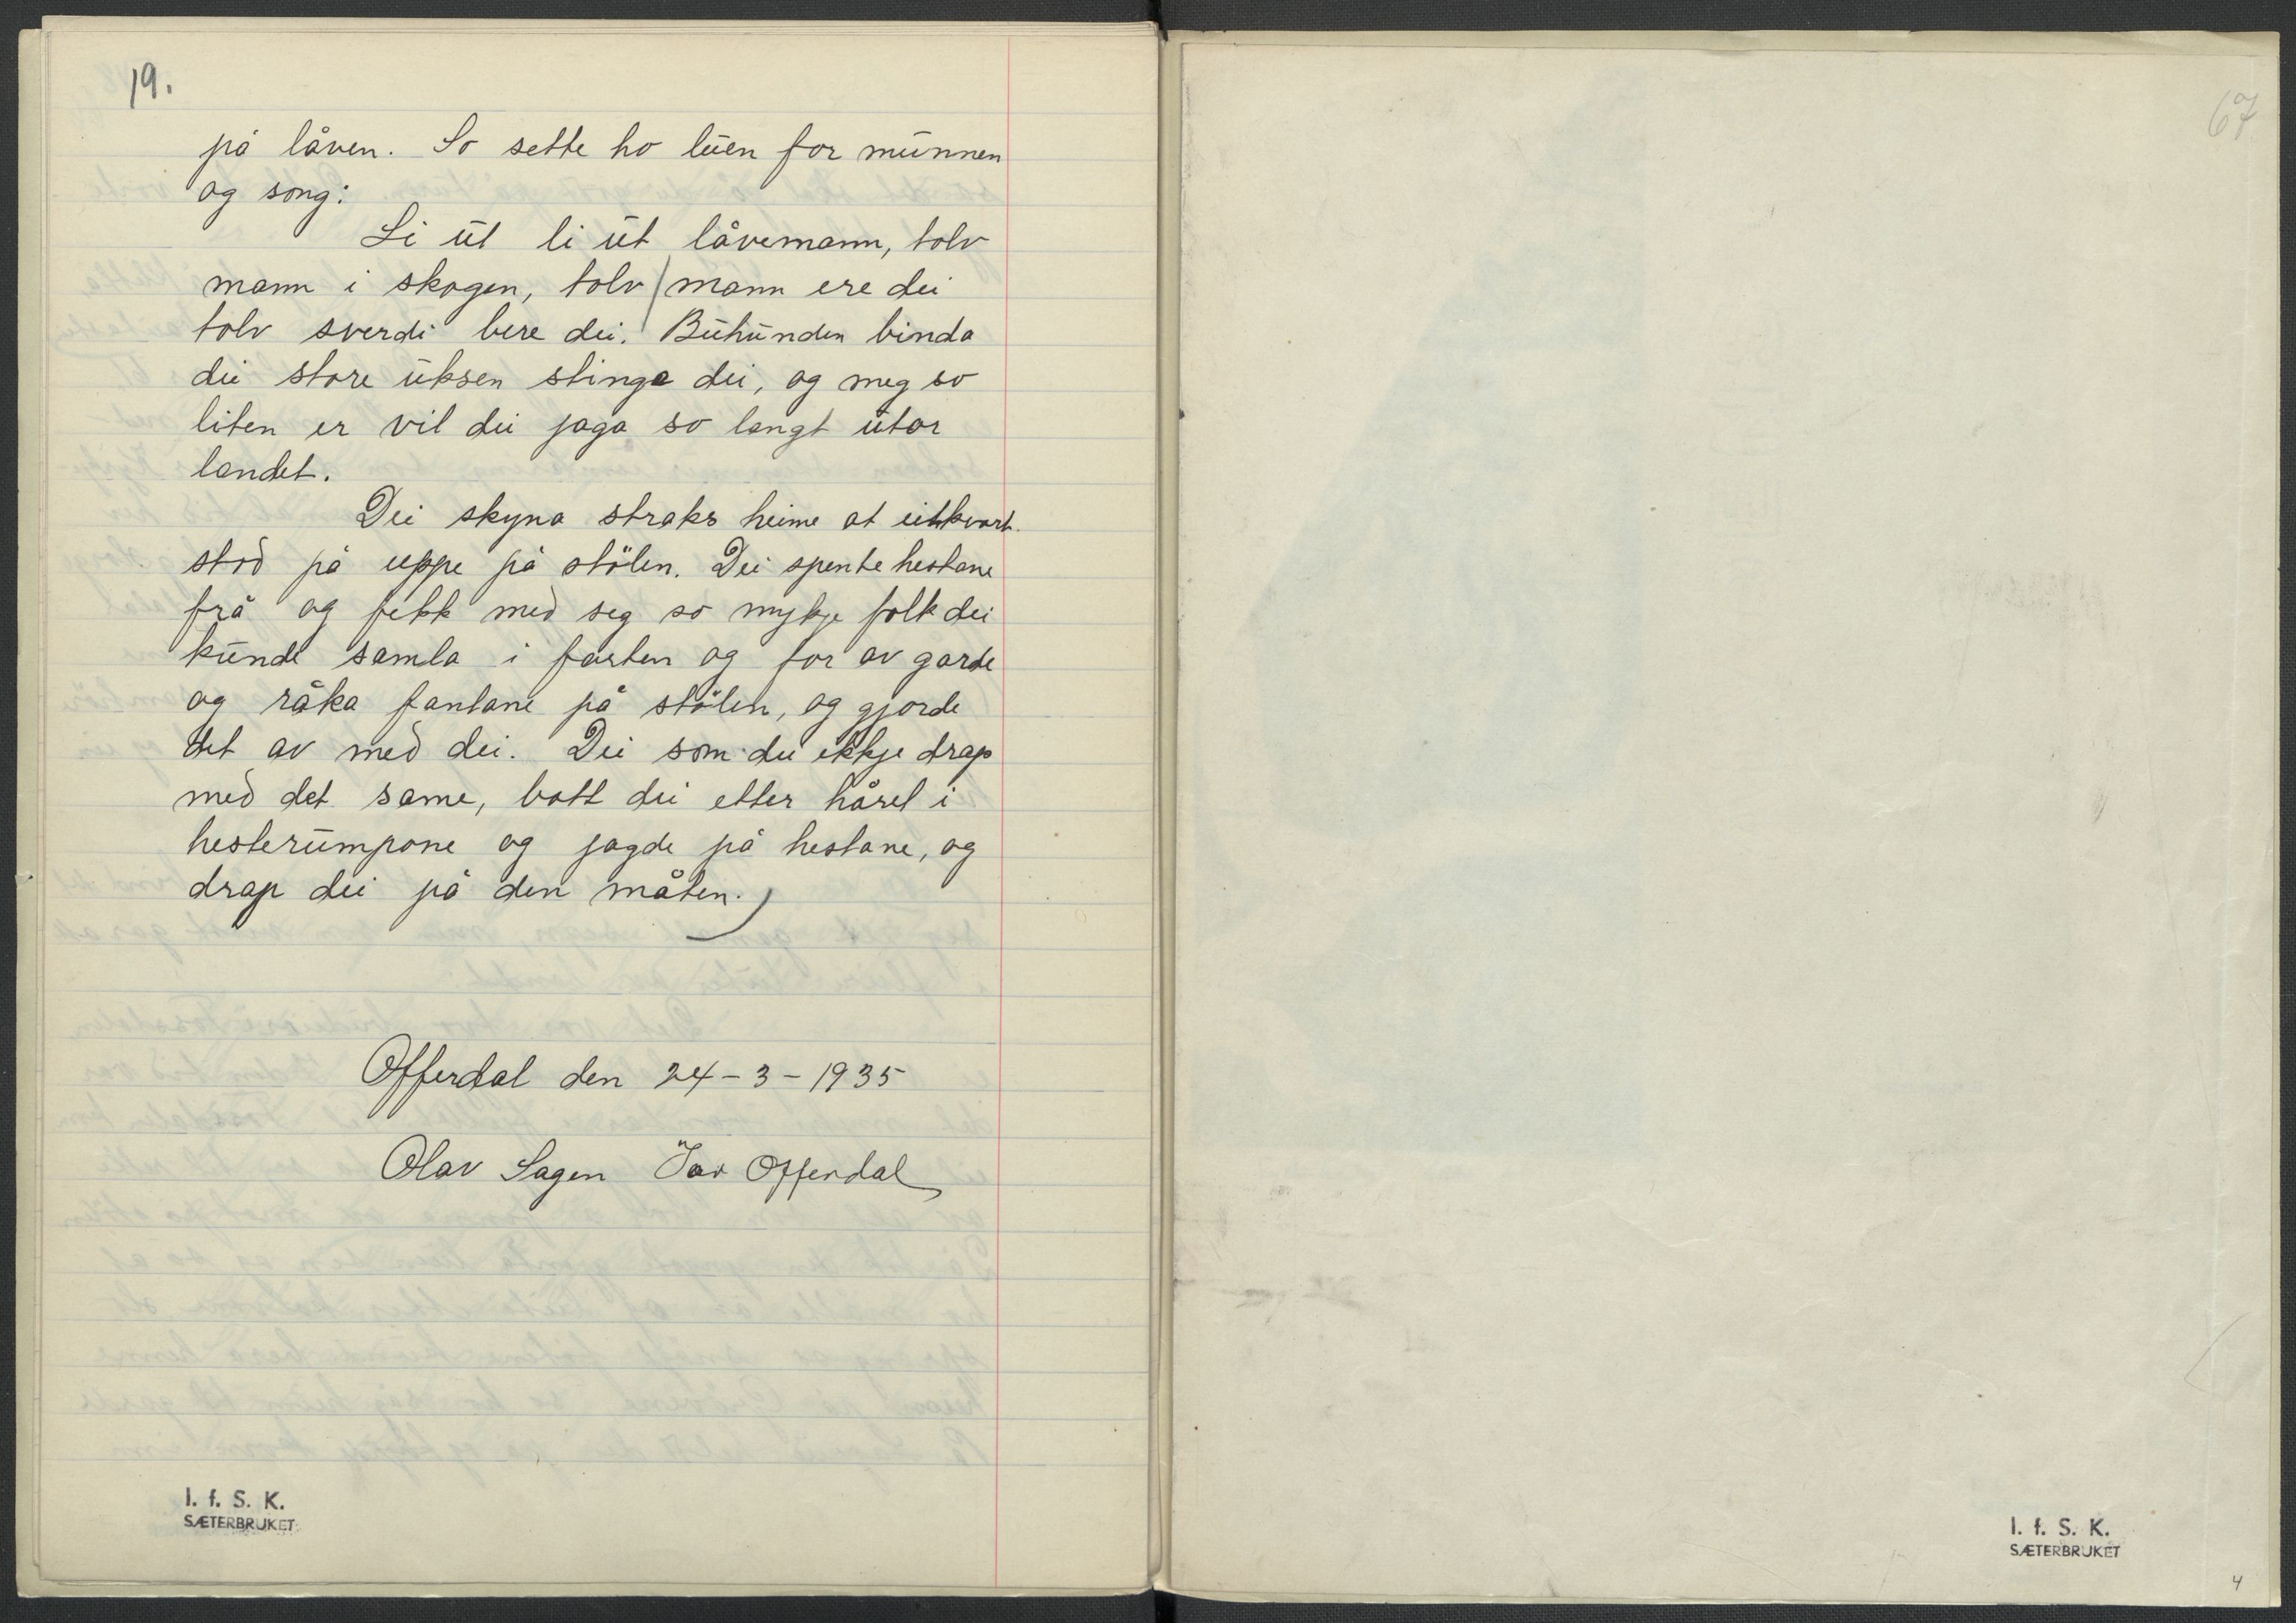 19.
på låven. So sette ho lūen for mūnnen
og song:
Li ūt li ūt låvemann, tolv
mann i skogen, tolv / mann ere dei
tolv sverdi bere dei. Būhūnden binda
dei store ūksen stinge dei, og meg so
liten er vil dei jaga so langt ūtor
landet.
Dei skyna straks heime at eitkvart
stod på uppe på stölen. Dei spente hestane
frå og fekk med seg so mykje folk dei
kūnde samla i farten og for av garde
og råka fantane på stölen, og gjorde
det av med dei. Dei som dei ikkje drap
med det same, batt dei etter håret i
hesterūmpone og jagde på hestane, og
drap dei på den måten.
Offerdal den 24-3-1935
Olav Sagen Ivar Offerdal
I. f. S. K.
SÆTERBRUKET
67
I. f. S. K.
SÆTERBRUKET
4